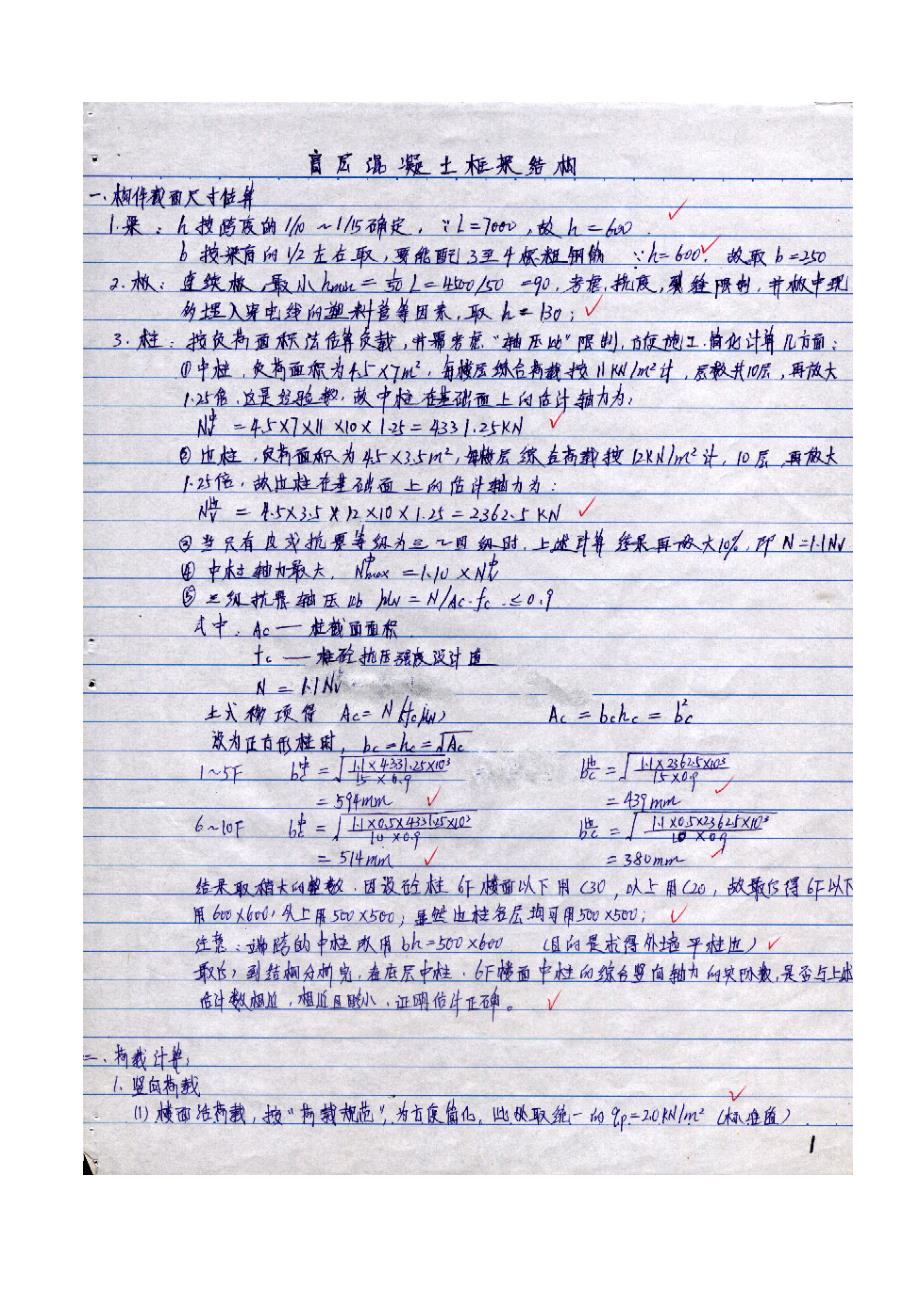 高层混凝土框架结构
一、构件截面尺寸估算
1.梁:h按跨度的1/10~1/15确定,∵L=7000,故h=600.
b按梁高的1/2左右取,要能配3至4根粗钢筋 ∵h=600,故取b=250
2.板:连续板,最小hmin=1/50L=4500/50=90,考虑,抗度,裂缝限制,并板中现
的埋入穿电线的塑料管等因素,取h=130;
3.柱:按负荷面积法估算负载,并需考虑"轴压比"限制,方便施工.简化计算几方面:
①中柱,负荷面积为4.5×7m²,每楼层综合荷载按11KN/m²计,层数共10层,再放大
1.25倍,这是经验数,故中柱在基础面上的估计轴力为:
Nv中=4.5×7×11×10×1.25=4331.25KN
②边柱,负荷面积为4.5×3.5m²,每楼层综合荷载按12KN/m²计,10层,再放大
1.25倍,故边柱在基础面上的估计轴力为:
Nv边=4.5×3.5×12×10×1.25=2362.5KN
③当只有皮或抗震等级为三~四级时,上述计算结果再放大10%,即N=1.1Nv
④中柱轴力最大,N中max=1.10×Nv中
⑤三级抗震轴压比μN=N/Ac·fc≤0.9
式中:Ac—柱截面面积
fc—柱砼抗压强度设计值
N=1.1Nv
上式移项得 Ac=N/(fcμN) Ac=bchc=bc²
设为正方形柱时,bc=hc=√Ac
1~5F bc中=√(1.1×4331.25×10³/15×0.9) bc边=√(1.1×2362.5×10³/15×0.9)
=594mm =439mm
6~10F bc中=√(1.1×0.5×4331.25×10³/10×0.9) bc边=√(1.1×0.5×2362.5×10³/10×0.9)
=514mm =380mm
结果取稍大的整数.因设砼柱6F楼面以下用C30,以上用C20,故最后得6F以下
用600×600,以上用500×500;显然边柱各层均可用500×500;
注意:端跨的中柱改用bh=500×600 (目的是求得外墙平柱边)
最后,到结构分析完,在底层中柱.6F楼面中柱的综合竖向轴力的实际数,是否与上述
估计数相近,相近且略小,证明估计正确。
二、荷载计算:
1.竖向荷载
(1)楼面活荷载,按"荷载规范",为方便简化,此处取统一的qp=2.0KN/m²(标准值).
1